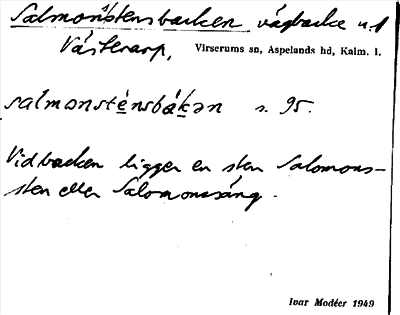 Salmonstensbacken vägbacke n.l
Västerarp, Virserums sn, Aspelands hd, Kalm. l.
salmonsténsbákən s. 95.
Vid backen ligger en sten Salomons-
sten eller Salomonssäng.
Ivar Modéer 1949